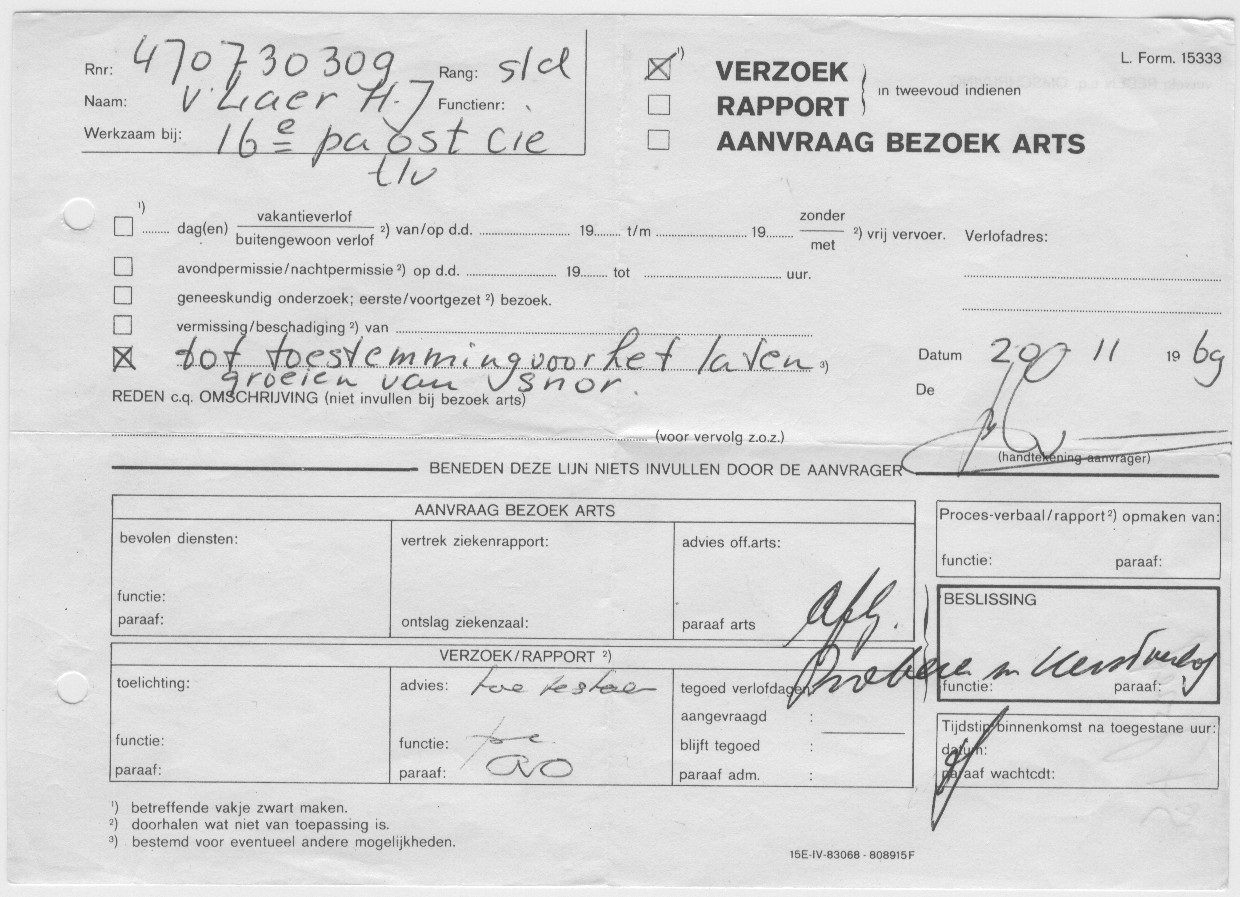 L. Form. 15333
Rnr: 470730309 Rang: sld
Naam: v Laer H.J Functienr:
Werkzaam bij: 16e pabost cie
tlv
☒ ¹) VERZOEK
☐ RAPPORT
in tweevoud indienen
☐ AANVRAAG BEZOEK ARTS
☐ ¹) ........ dag(en) vakantieverlof / buitengewoon verlof ²) van/op d.d. ........ 19...... t/m ........ 19...... zonder / met ²) vrij vervoer. Verlofadres:
☐ avondpermissie/nachtpermissie ²) op d.d. ........ 19...... tot ........ uur.
☐ geneeskundig onderzoek; eerste/voortgezet ²) bezoek.
☐ vermissing/beschadiging ²) van ........
☒ tot toestemming voor het laten ³)
groeien van snor.
Datum 20 11 19 69
De
REDEN c.q. OMSCHRIJVING (niet invullen bij bezoek arts)
(voor vervolg z.o.z.)
(handtekening aanvrager)
BENEDEN DEZE LIJN NIETS INVULLEN DOOR DE AANVRAGER
AANVRAAG BEZOEK ARTS
bevolen diensten:
functie:
paraaf:
vertrek ziekenrapport:
ontslag ziekenzaal:
advies off.arts:
paraaf arts
Proces-verbaal/rapport ²) opmaken van:
functie: paraaf:
BESLISSING
Afg.
Proberen in Kerstverlof
functie: paraaf:
VERZOEK/RAPPORT ²)
toelichting:
functie:
paraaf:
advies: toe te staan
functie:
paraaf:
tegoed verlofdagen:
aangevraagd :
blijft tegoed :
paraaf adm. :
Tijdstip binnenkomst na toegestane uur:
datum:
paraaf wachtcdt:
¹) betreffende vakje zwart maken.
²) doorhalen wat niet van toepassing is.
³) bestemd voor eventueel andere mogelijkheden.
15E-IV-83068 - 808915F